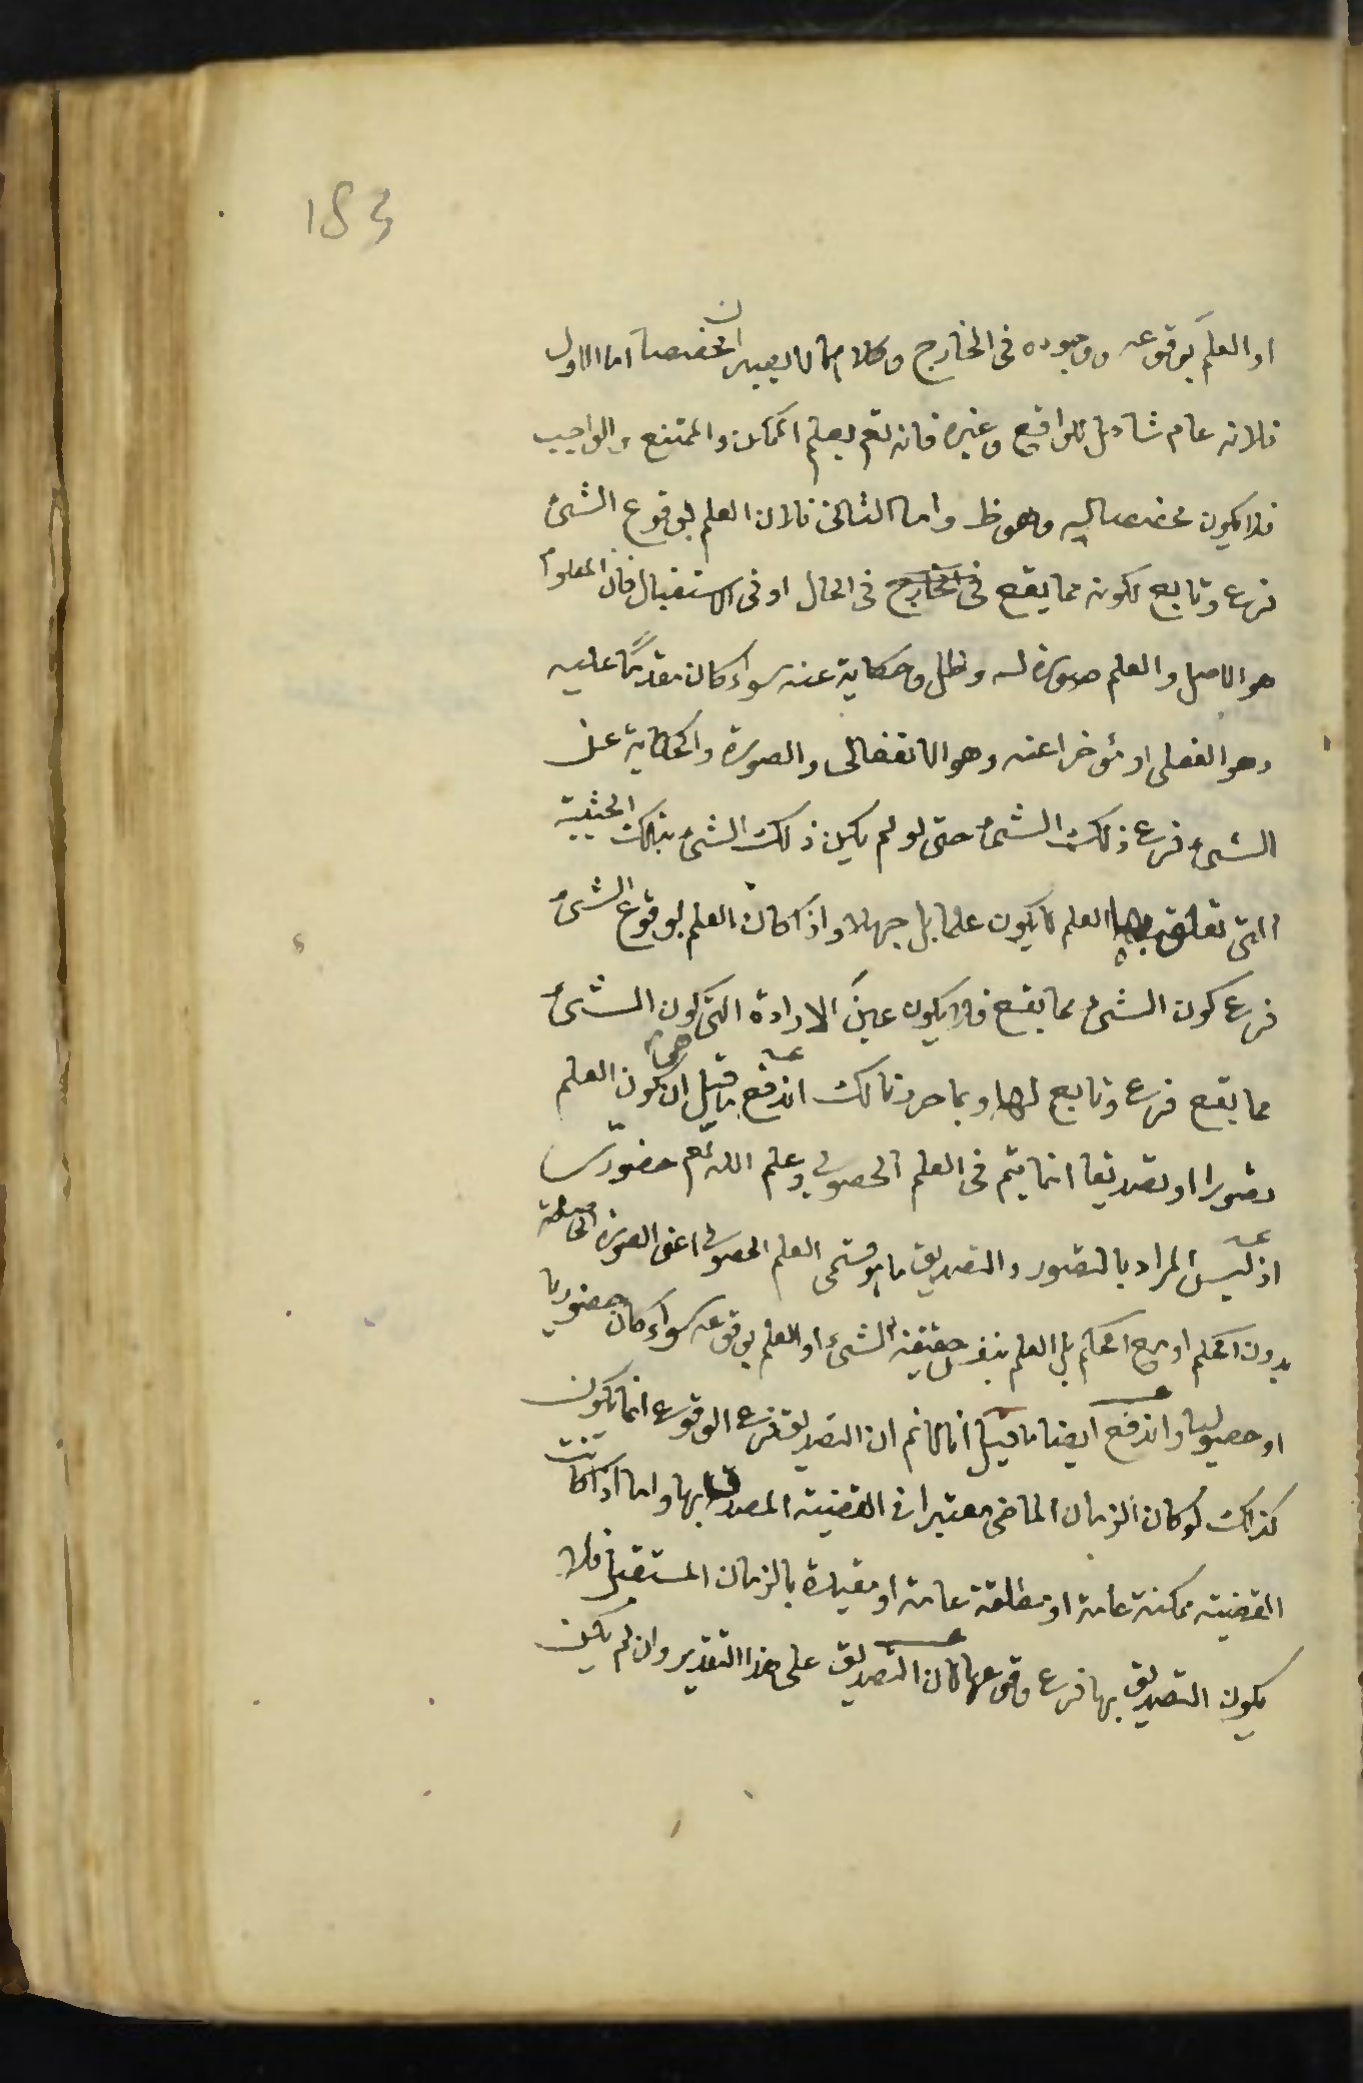 183
او العلم بوقوعه ووجوده فى الخارج وكلاهما لا يصيران مخصصا اما الاول
فلانه عام شامل للواقع وغيره فانه تع يعلم الممكن والممتنع والواجب
فلا يكون مخصصا به وهو ظ واما الثانى فلان العلم بوقوع الشئ
فرع وتابع لكونه مما يقع فى الخارج فى الحال او فى الاستقبال فان المعلوم
هو الاصل والعلم صورة له وظل وحكاية عنه سواء كان مقدما عليه
وهو الفعلى او مؤخرا عنه وهو الانفعالى والصورة والحكاية عن
الشئ فرع ذلك الشئ حتى لو لم يكن ذلك الشئ بتلك الحيثية
التى تعلق بها العلم لا يكون علما بل جهلا واذا كان العلم بوقوع الشئ
فرع كون الشئ مما يقع فلا يكون عين الارادة التى كون الشئ
مما يقع فرع وتابع لها وبما حررنا لك اندفع ما قيل ان كون العلم
تصورا او تصديقا انما يتم فى العلم الحصولى وعلم الله تع حضورى
اذ ليس المراد بالتصور والتصديق ما هو قسمى العلم الحصولى اعنى الصورة الحاصلة
بدون الحكم او مع الحكم بل العلم بنفس حقيقة الشئ او العلم بوقوعه سواء كان حضوريا
او حصوليا واندفع ايضا ما قيل انا لا نم ان التصديق فرع الوقوع انما يكون
كذلك لو كان الزمان الماضى معتبرا فى القضية المصدق بها واما اذا كانت
القضية ممكنة عامة او مطلقة عامة او مقيدة بالزمان المستقبل فلا
يكون التصديق بها فرع وقوعها لان التصديق على هذا التقدير وان لم يكن